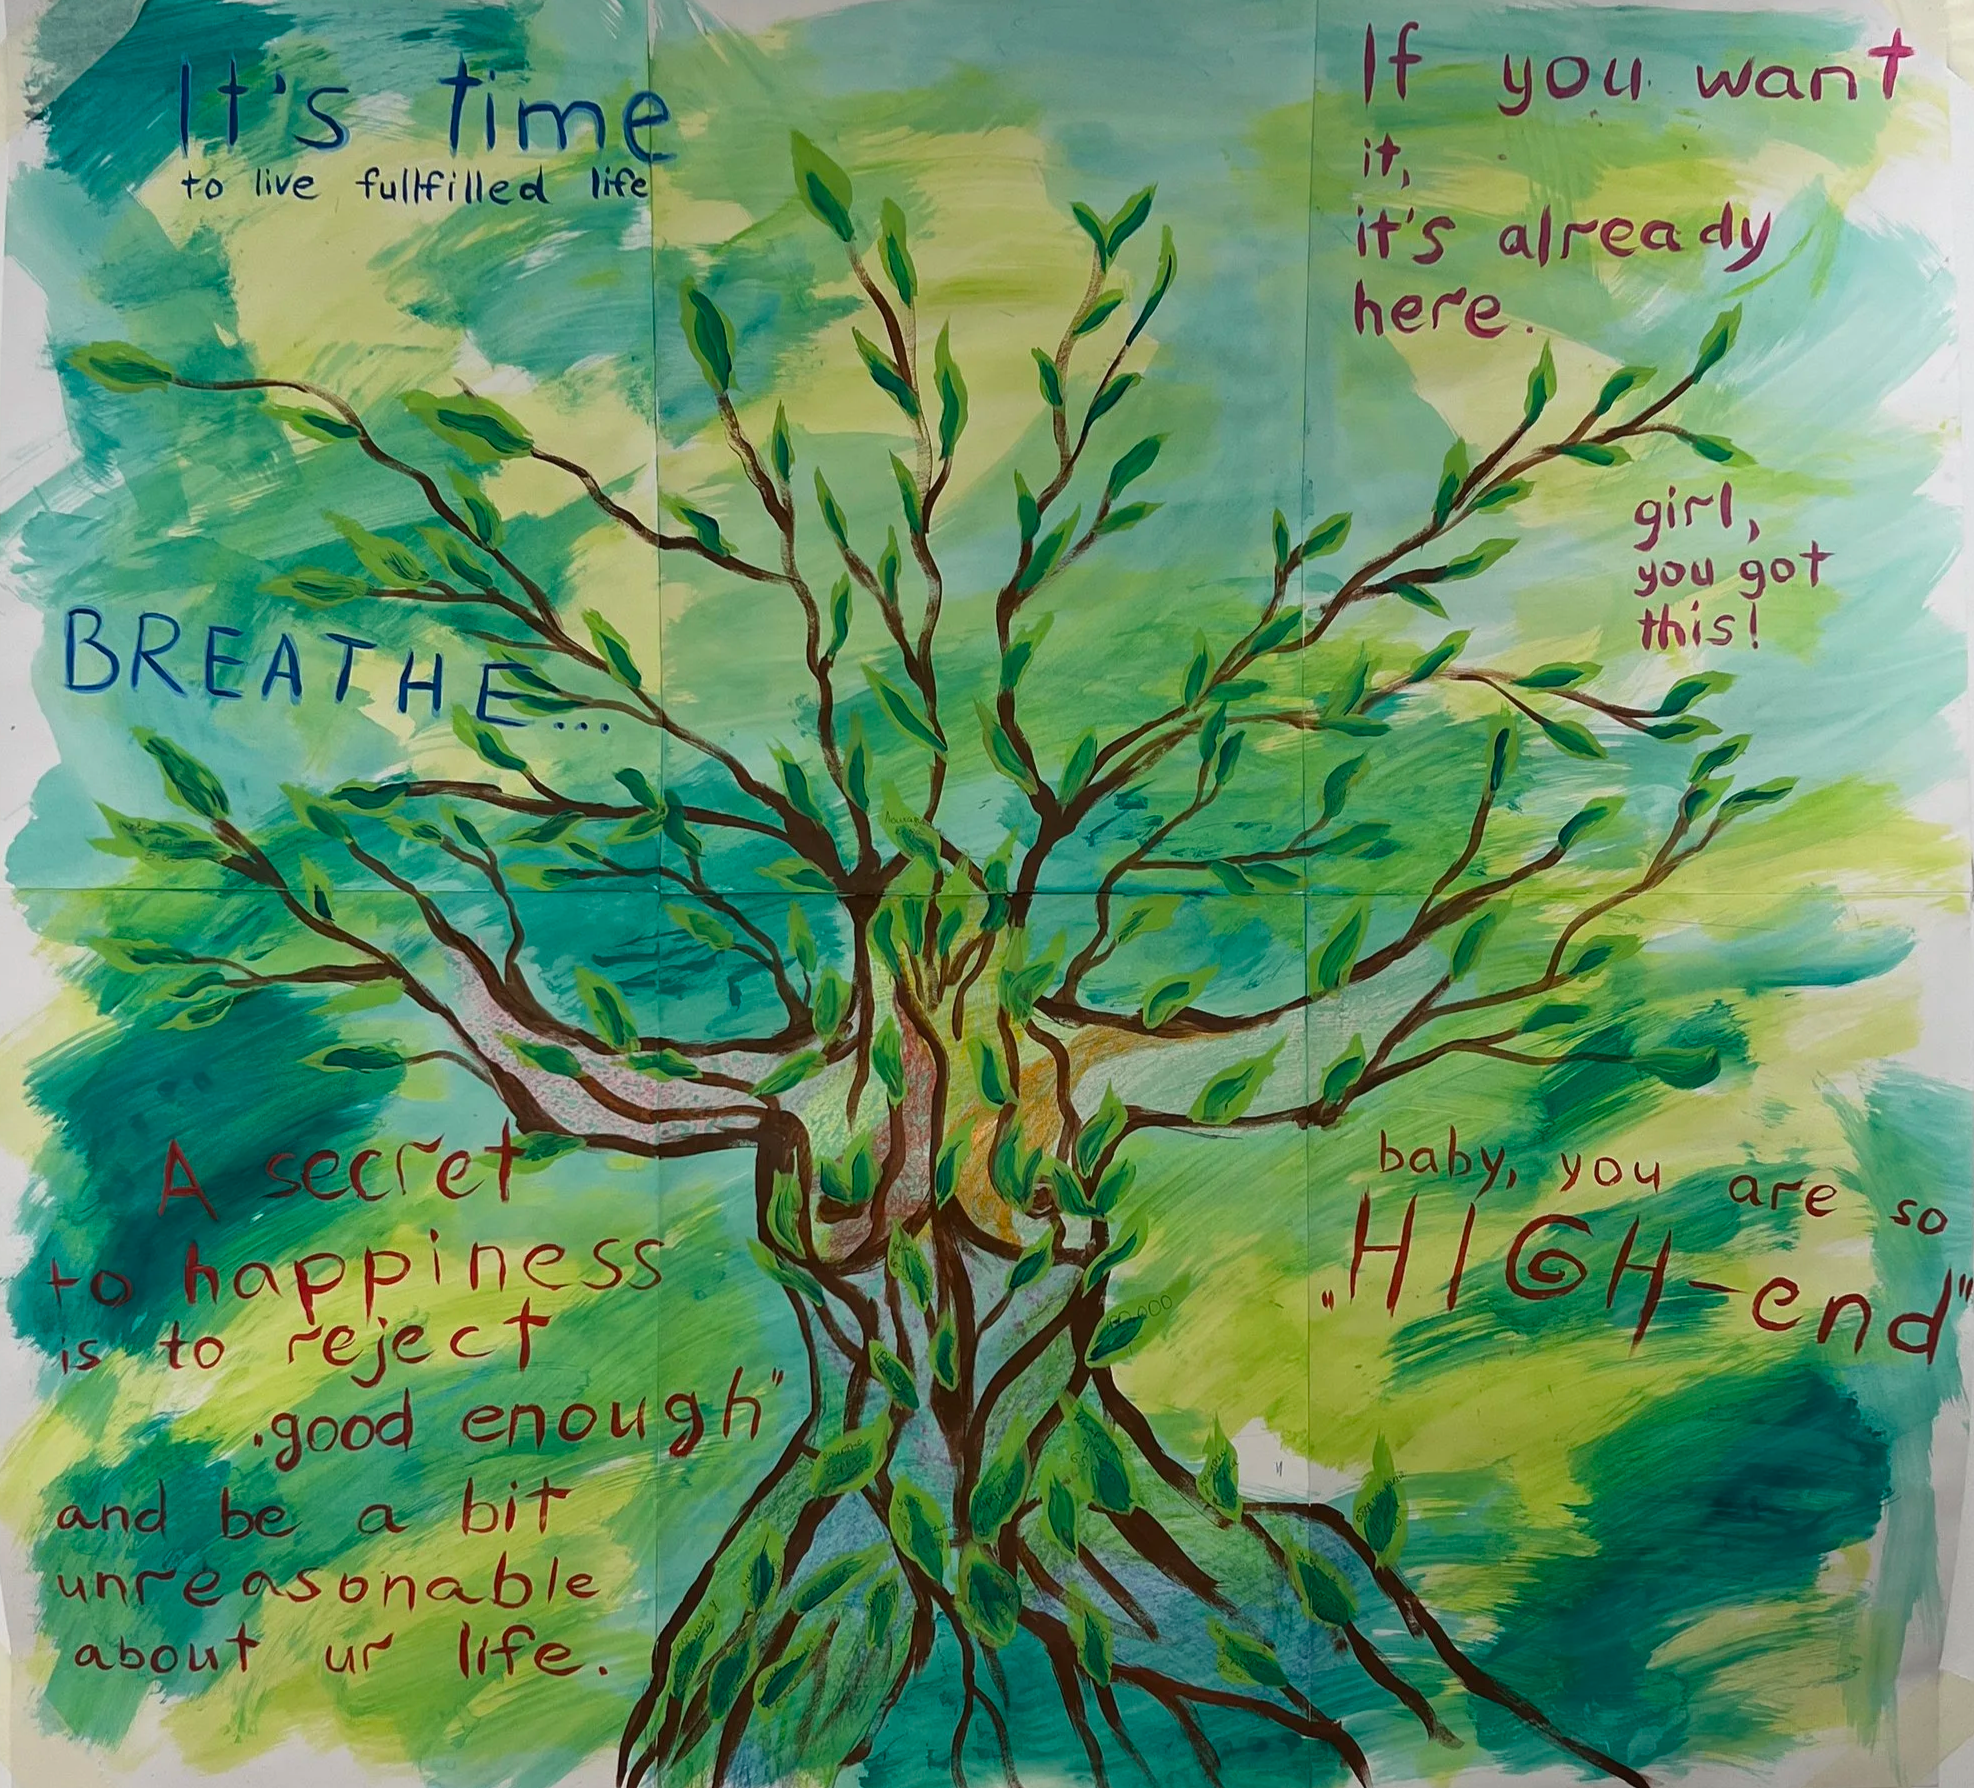 It's time
to live fullfilled life
If you want
it,
it's already
here.
girl,
you got
this!
BREATHE...
A secret
to happiness
is to reject
„good enough"
and be a bit
unreasonable
about ur life.
baby, you are so
„HIGH-end"